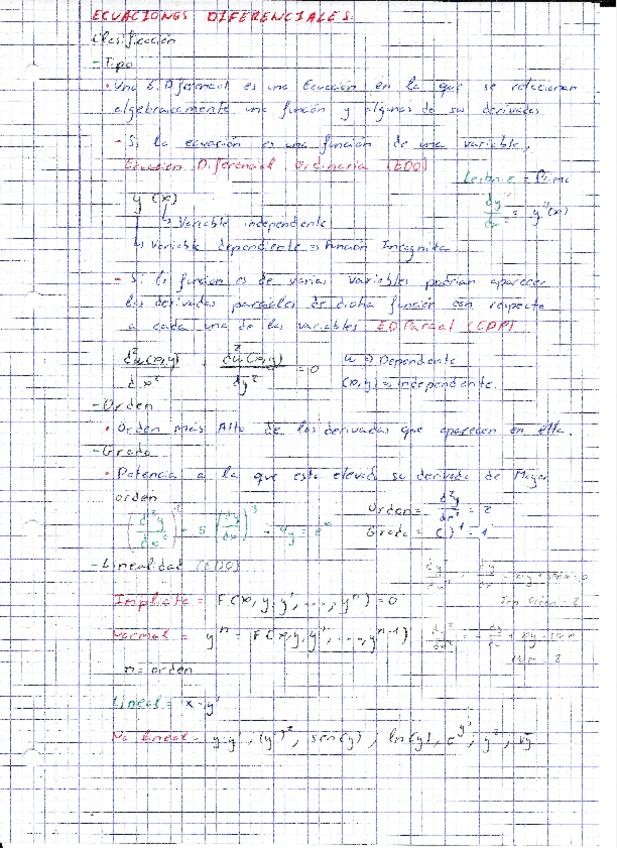 ECUACIONES DIFERENCIALES.
Clasificación
- Tipo
• Una E. Diferencial es una Ecuación en la que se relacionan
algebraicamente una función y algunas de sus derivadas
- Si la ecuación es una función de una variable,
Ecuacion Diferencial Ordinaria (EDO)
Leibniz = Prima
dy/dx = y'(x)
y (x)
↳ Variable independente
↳ Variable dependiente => Función Incognita
- Si la funcion es de varias variables podrían aparecer
las derivadas parciales de dicha función con respecto
a cada una de las variables E.D.Parcial (EDP)
d²u(x,y)/dx² + d²u(x,y)/dy² = 0
u => Dependente
(x,y) => independente.
- Orden
• Orden más Alto de las derivadas que aparecen en ella.
- Grado
• Potencia a la que esta elevida su derivada de Mayor
orden
Orden = d²y/dx² = 2
Grado = ( )¹ = 1
(d²y/dx²) 5 (dy/dx)³ - 4y = eˣ
- Linealidad (EDO)
Implicita = F(x, y, y', ..., yⁿ) = 0
Normal = yⁿ = F(x, y, y', ..., yⁿ⁻¹)
n = orden
Lineal = x · y'
No lineal = y·y', (y')², sen(y), ln(y), e^y', y², √y